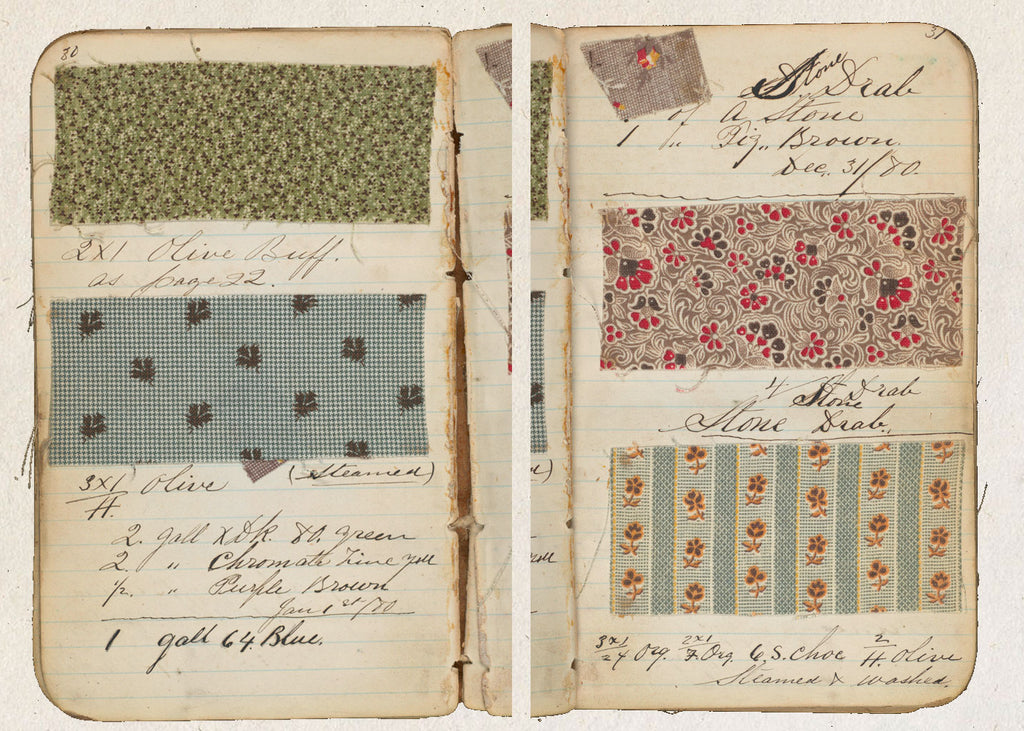 80
2x1 Olive Buff.
as page 22.
3x1/H Olive (Steamed)
2. gall X Dk. 80. green
2. " Chromate Zinc yell
1/2. " Purple Brown
Jan 1st/80
1 gall 64 Blue.
31
Stone Drab
1 of A Stone
1 " Pig,, Brown.
Dec. 31/80.
4 Stone Drab
Stone Drab.
3x1/24 Org. 2x1/7 Org. 6.S. Choc 2/H. Olive
Steamed & washed.